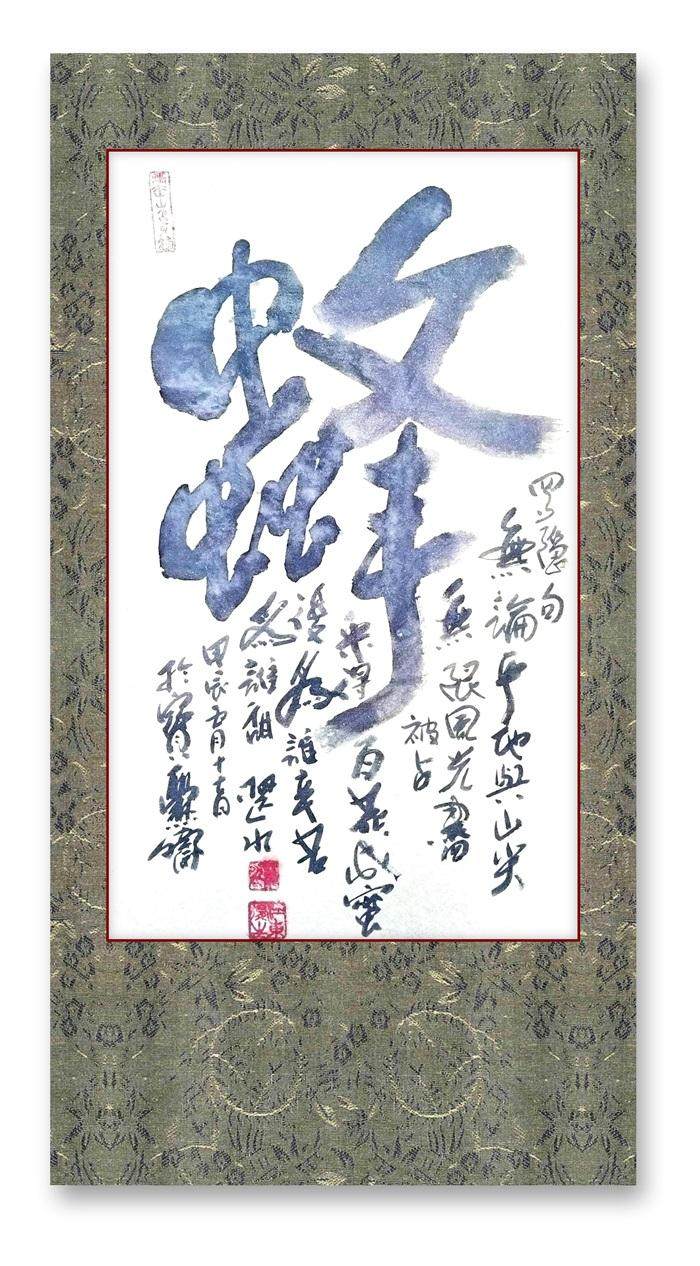 蜂
羅隱句
無論平地與山尖
無限風光盡
被占
采得百花成蜜
後為誰辛苦
為誰甜
甲辰五月十
於寶